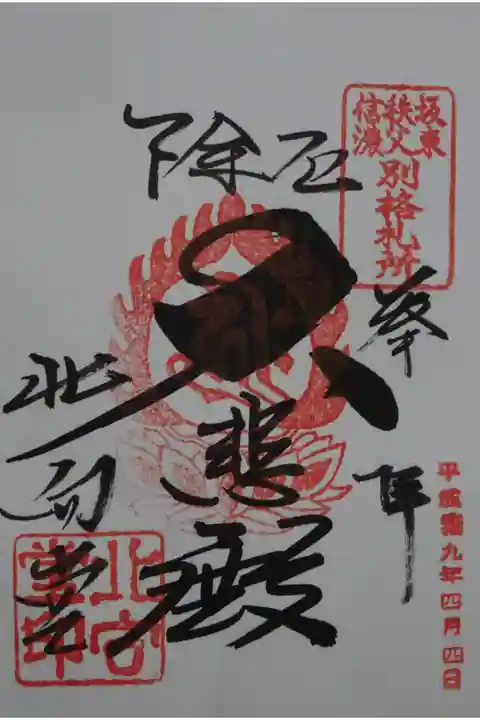 坂東
秩父
信濃
別格札所
奉拝
平成
九年四月四日
厄除
大悲殿
北向堂
北向
堂印